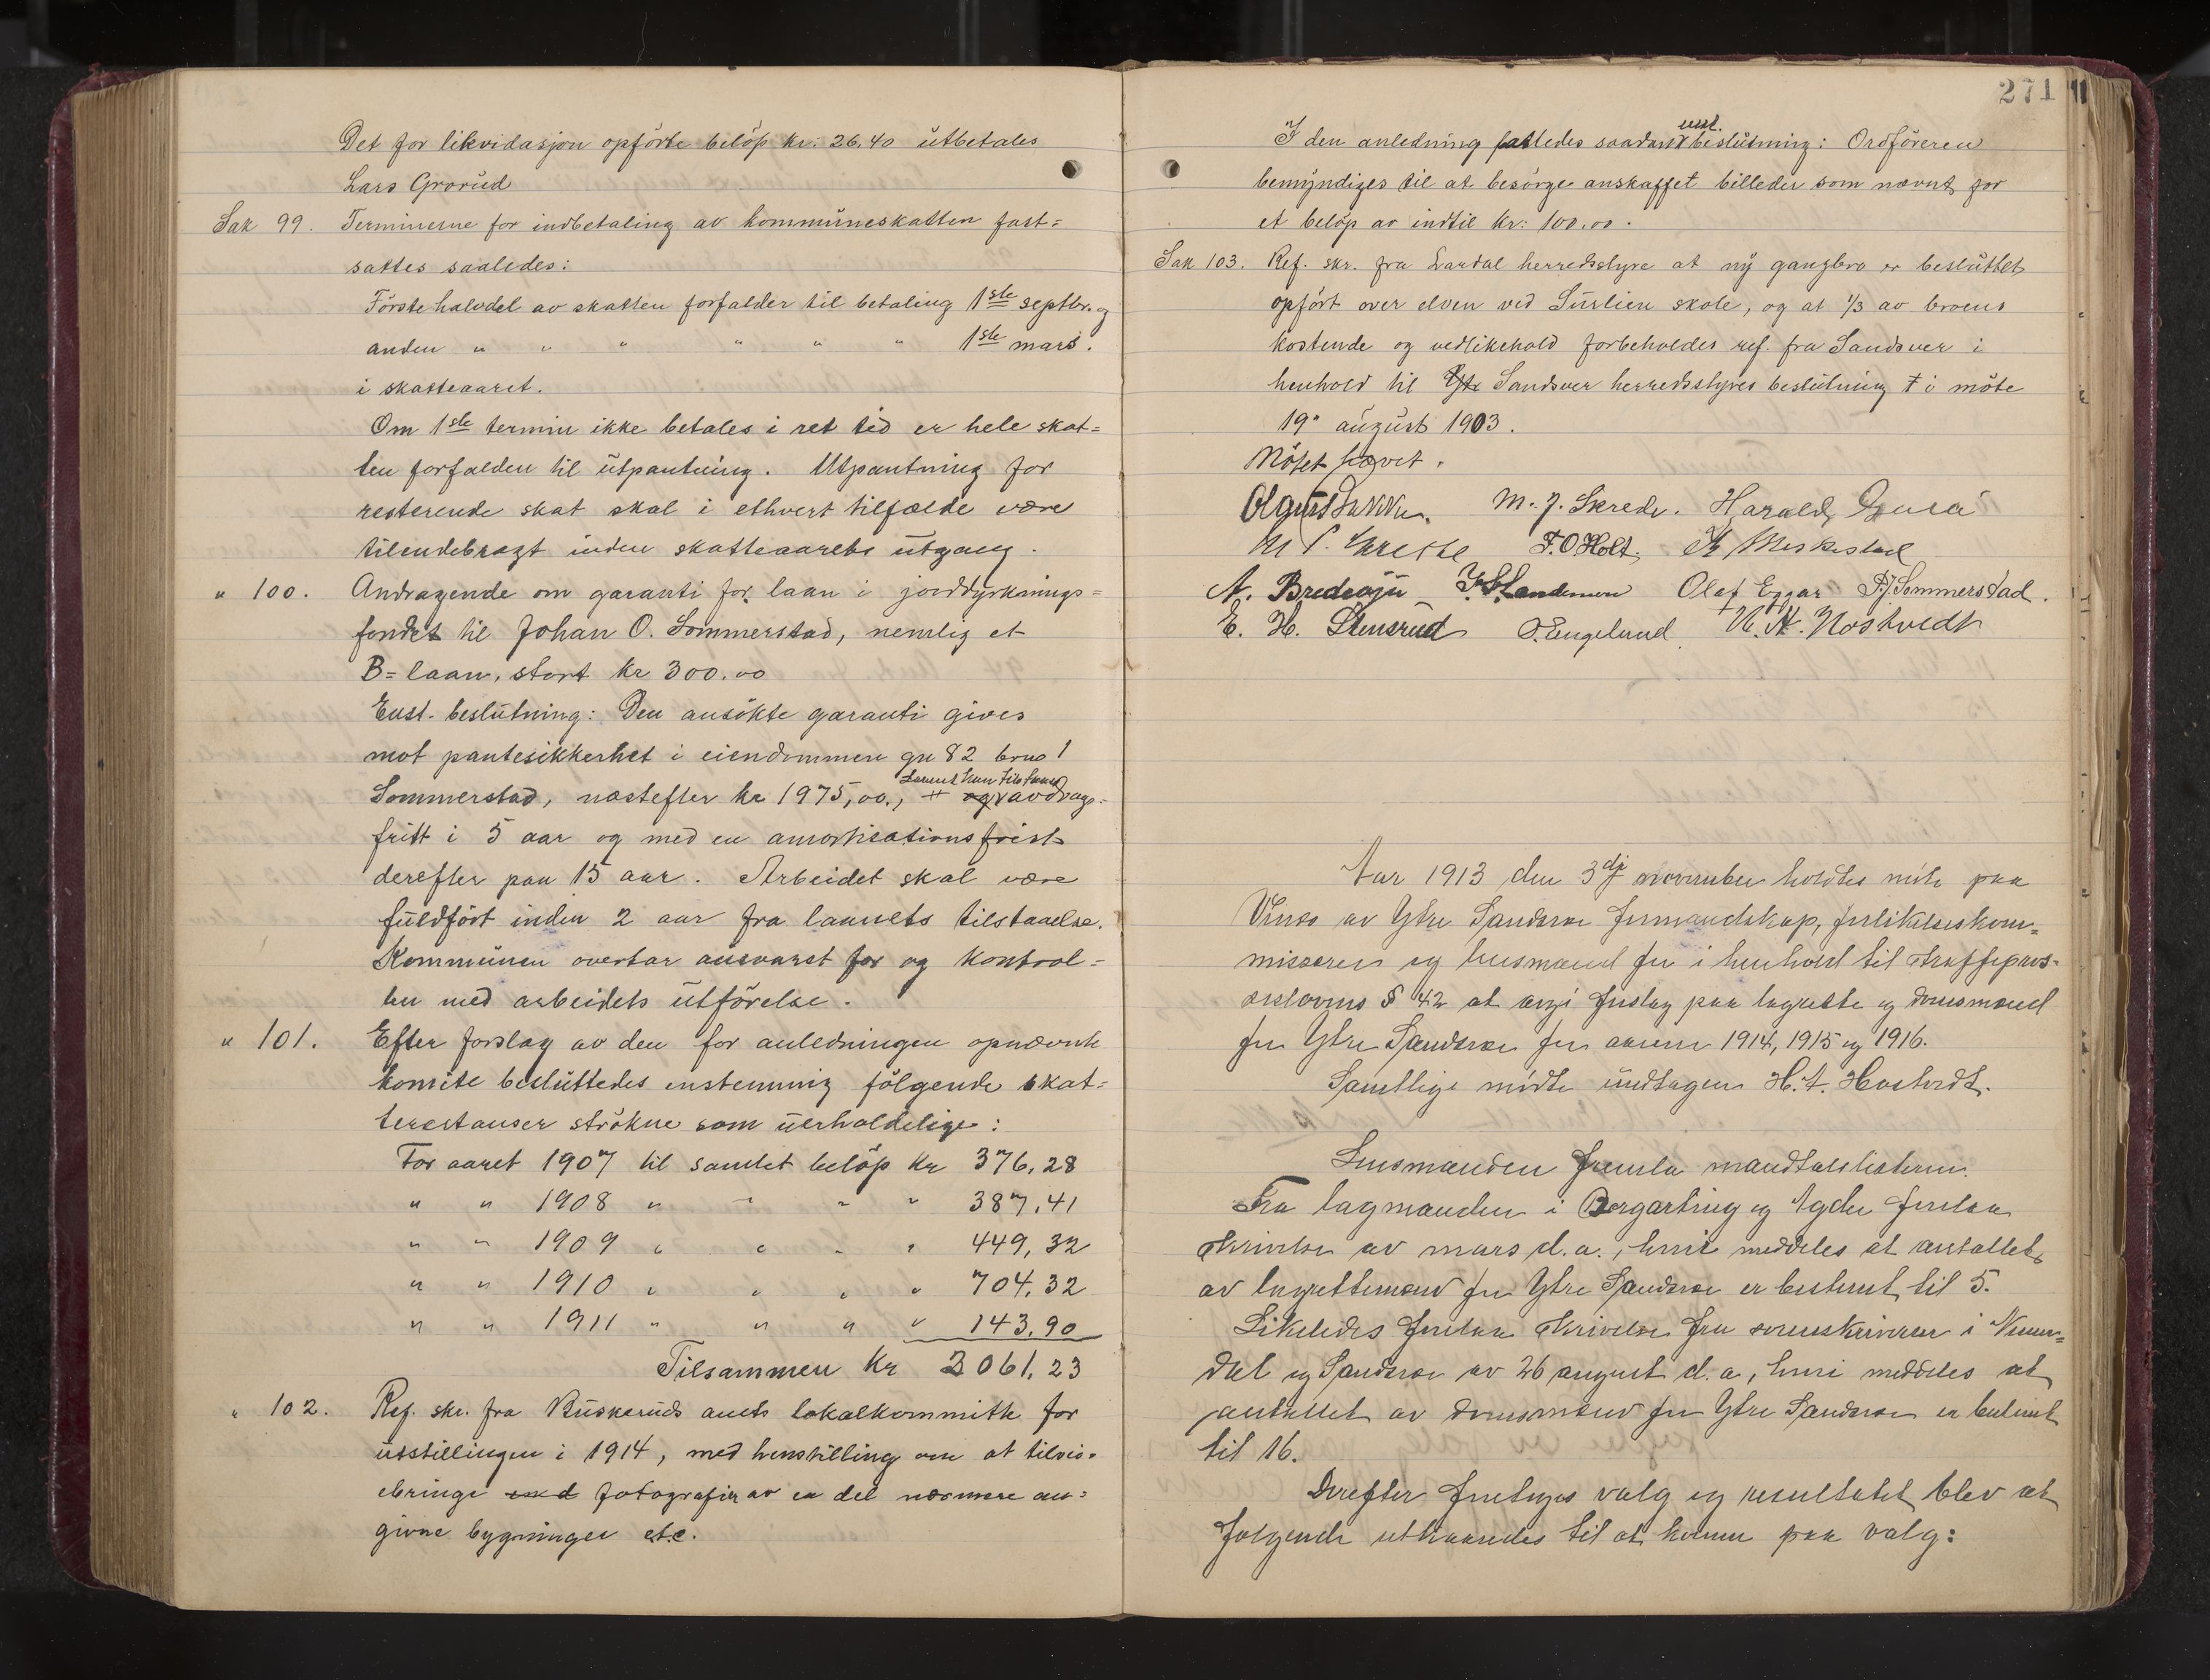 Det for likvidasjon opförte belöp kr. 26.40 utbetales
Lars Grorud
Sak 99. Terminerne for indbetaling av kommuneskatten fast=
sattes saaledes:
Förste halvdel av skatten forfalder til betaling 1ste septbr. og
anden " " " " " " 1ste mars.
i skatteaaret.
Om 1ste termin ikke betales i ret tid er hele skat=
ten forfalden til utpantning. Utpantning for
resterende skat skal i ethvert tilfælde være
tilendebragt inden skatteaarets utgang.
" 100. Andragende om garanti for laan i jorddyrknings=
fondet til Johan O. Sommerstad, nemlig et
B=laan, stort kr 300.00
Enst. beslutning: Den ansökte garanti gives
mot pantesikkerhet i eiendommen gn 82 brno 1
Sommerstad, næstefter kr 1975,00., og avdrags=
fritt i 5 aar og med en amortisationsfrist
derefter paa 15 aar. Arbeidet skal være
fuldfört inden 2 aar fra laanets tilstaaelse.
Kommunen overtar ansvaret for og kontrol=
len med arbeidets utförelse.
" 101. Efter forslag av den for anledningen opnævnte
komite besluttedes enstemmig følgende skat=
terestanser strökne som uerholdelige:
For aaret 1907 til samlet belöp kr 376,28
" " 1908 " " " " 387,41
" " 1909 " " " " 449,32
" " 1910 " " " " 704,32
" " 1911 " " " " 143,90
Tilsammen Kr 2061,23
" 102. Ref. skr. fra Buskeruds amts lokalkommitte for
utstillingen i 1914, med henstilling om at tilveie-
bringe fotografier av en del nærmere an=
givne bygninger etc.
271
I den anledning fattedes saadan enst. beslutning: Ordföreren
bemyndiges til at besörge anskaffet billeder som nævnt for
et belöp av indtil kr: 100.00.
Sak 103. Ref. skr. fra Lardal herredsstyre at ny gangbro er besluttet
opfört over elven ved Surlien skole, og at 1/3 av broens
kostende og vedlikehold forbeholdes ref. fra Sandsver i
henhold til Ytr Sandsver herredsstyres beslutning i möte
19. august 1903.
Mötet hævet.
M. J. Skrede. Harald
F. O Holt.
A. Bredesen Olaf Eggar P. J. Sommerstad.
E. H. Stensrud O. Engelund H. A. Hostvedt
Aar 1913 den 3dj november holdtes möte paa
Vinæs av Ytre Sandsver formandskap, forlikelseskom=
missærer og lensmand for i henhold til straffepros=
esslovens § 42 at avgi forslag paa lagrette og domsmænd
for Ytre Sandsver for aarene 1914, 1915 og 1916.
Samtlige mödte undtagen H. A. Hostvedt.
Lensmanden fremla mandtalslisterne.
Fra lagmanden i Borgarting og Agder forelaa
skrivelse av mars d.a., hvori meddeles at antallet
av lagrettemænd for Ytre Sandsver er bestemt til 5.
Likeledes forelaa skrivelse fra sorenskriveren i Numme=
dal og Sandsver av 26 august d.a, hvori meddeles at
antallet av domsmænd for Ytre Sandsver er bestemt
til 16.
Derefter foretoges valg og resultatet blev at
følgende utkaaredes til at komme paa valg: